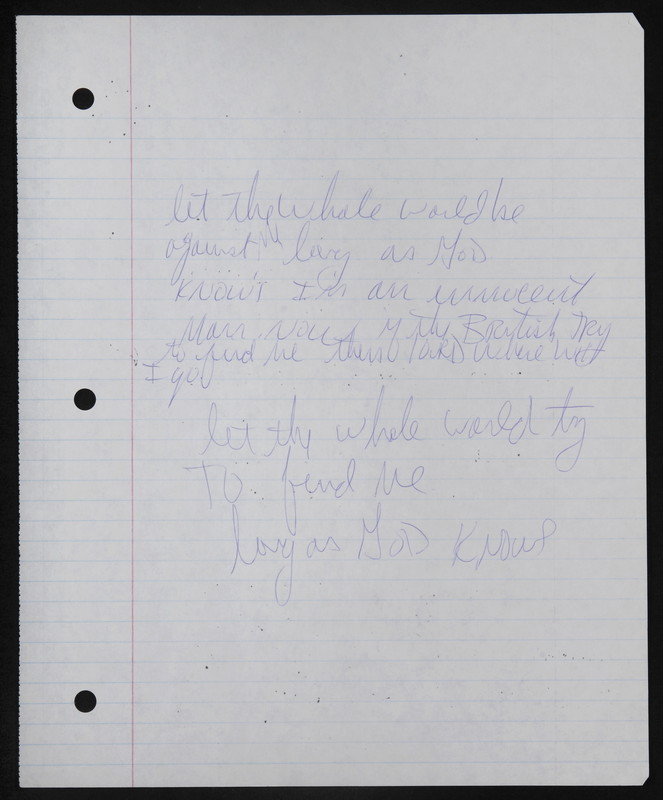 let thy whole world be
against me long as GOD
KNOW'S I'm an innocent
Man now if the British try
to find me then LORD where will
I go
let thy whole world try
TO find Me
long as GOD KNOWS